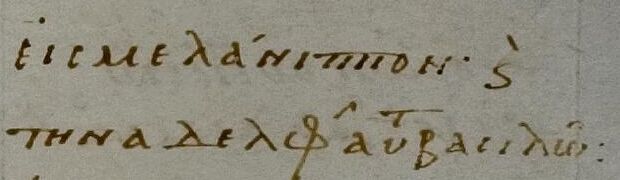 εις μελάνιππον· ϛ̀
την αδελφ^ αυτ βασιλῶ: